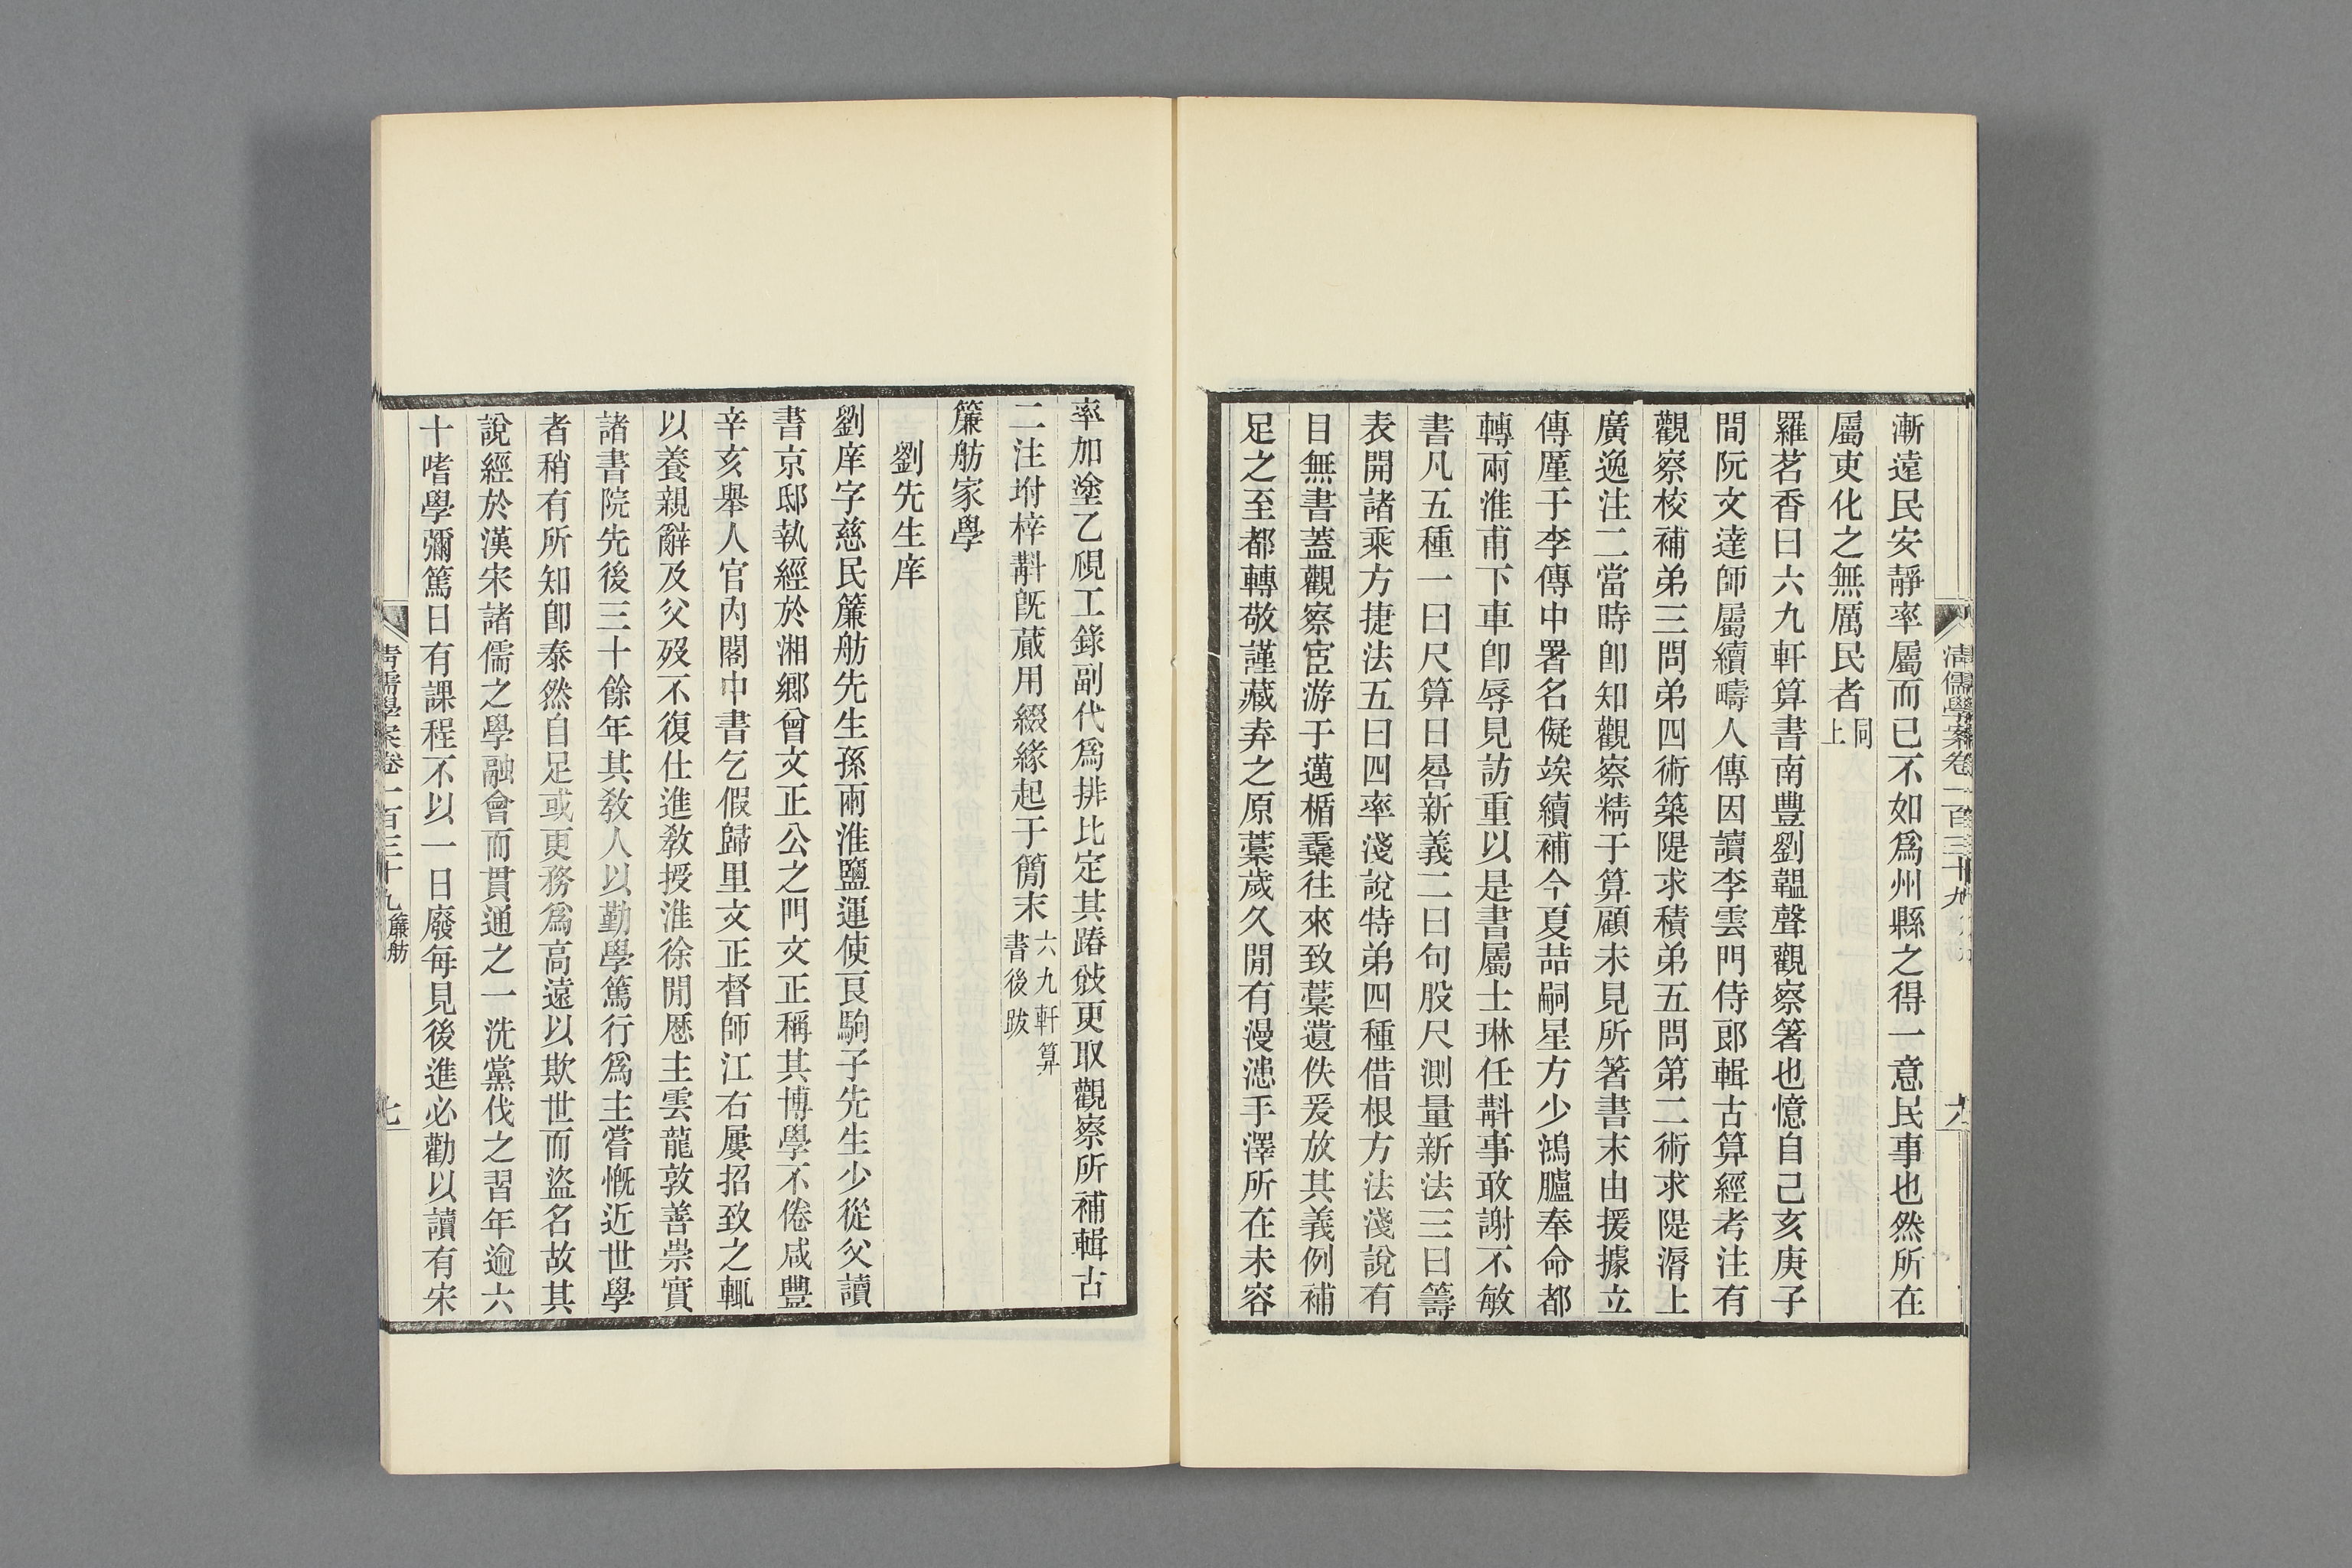 漸遠民安靜率屬而已不如爲州縣之得一意民事也然所在
屬吏化之無厲民者同上
羅茗香曰六九軒算書南豐劉韞聲觀察箸也憶自己亥庚子
間阮文達師屬續疇人傳因讀李雲門侍郞輯古算經考注有
觀察校補弟三問弟四術築隄求積弟五問第二術求隄漘上
廣逸注二當時卽知觀察精于算顧未見所箸書末由援據立
傳厪于李傳中署名儗竢續補今夏喆嗣星方少鴻臚奉命都
轉兩淮甫下車卽辱見訪重以是書屬士琳任斠事敢謝不敏
書凡五種一曰尺算日晷新義二曰句股尺測量新法三曰籌
表開諸乘方捷法五曰四率淺說特弟四種借根方法淺說有
目無書蓋觀察宦游于邁楯鼗往來致藁遺佚爰放其義例補
足之至都轉敬謹藏弆之原藁歲久閒有漫漶手澤所在未容
率加塗乙覙工錄副代爲排比定其踳敚更取觀察所補輯古
二注坿梓斠旣蕆用綴緣起于簡末六九軒算書後跋
簾舫家學
劉先生庠
劉庠字慈民簾舫先生孫兩淮鹽運使良駒子先生少從父讀
書京邸執經於湘鄉曾文正公之門文正稱其博學不倦咸豐
辛亥舉人官內閣中書乞假歸里文正督師江右屢招致之輒
以養親辭及父歿不復仕進敎授淮徐閒歷主雲龍敦善崇實
諸書院先後三十餘年其敎人以勤學篤行爲主嘗慨近世學
者稍有所知卽泰然自足或更務爲高遠以欺世而盜名故其
說經於漢宋諸儒之學融會而貫通之一洗黨伐之習年逾六
十嗜學彌篤日有課程不以一日廢每見後進必勸以讀有宋
清儒學案卷一百三十九 簾舫
七